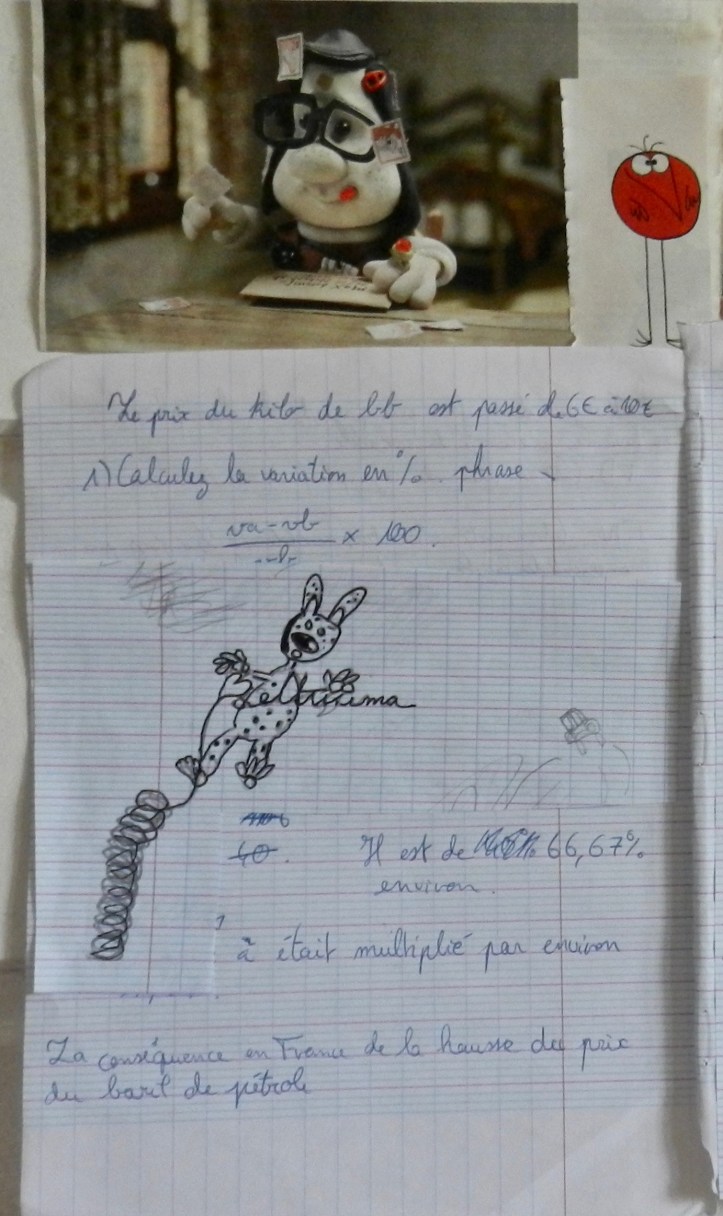 Le prix du kilo de bb est passé de 6€ à 10€
1) Calculez la variation en %. phrase
va - vb
x 100.
40.
Il est de 66,67%
environ.
à était multiplié par environ
La conséquence en France de la hausse du prix
du baril de pétrole